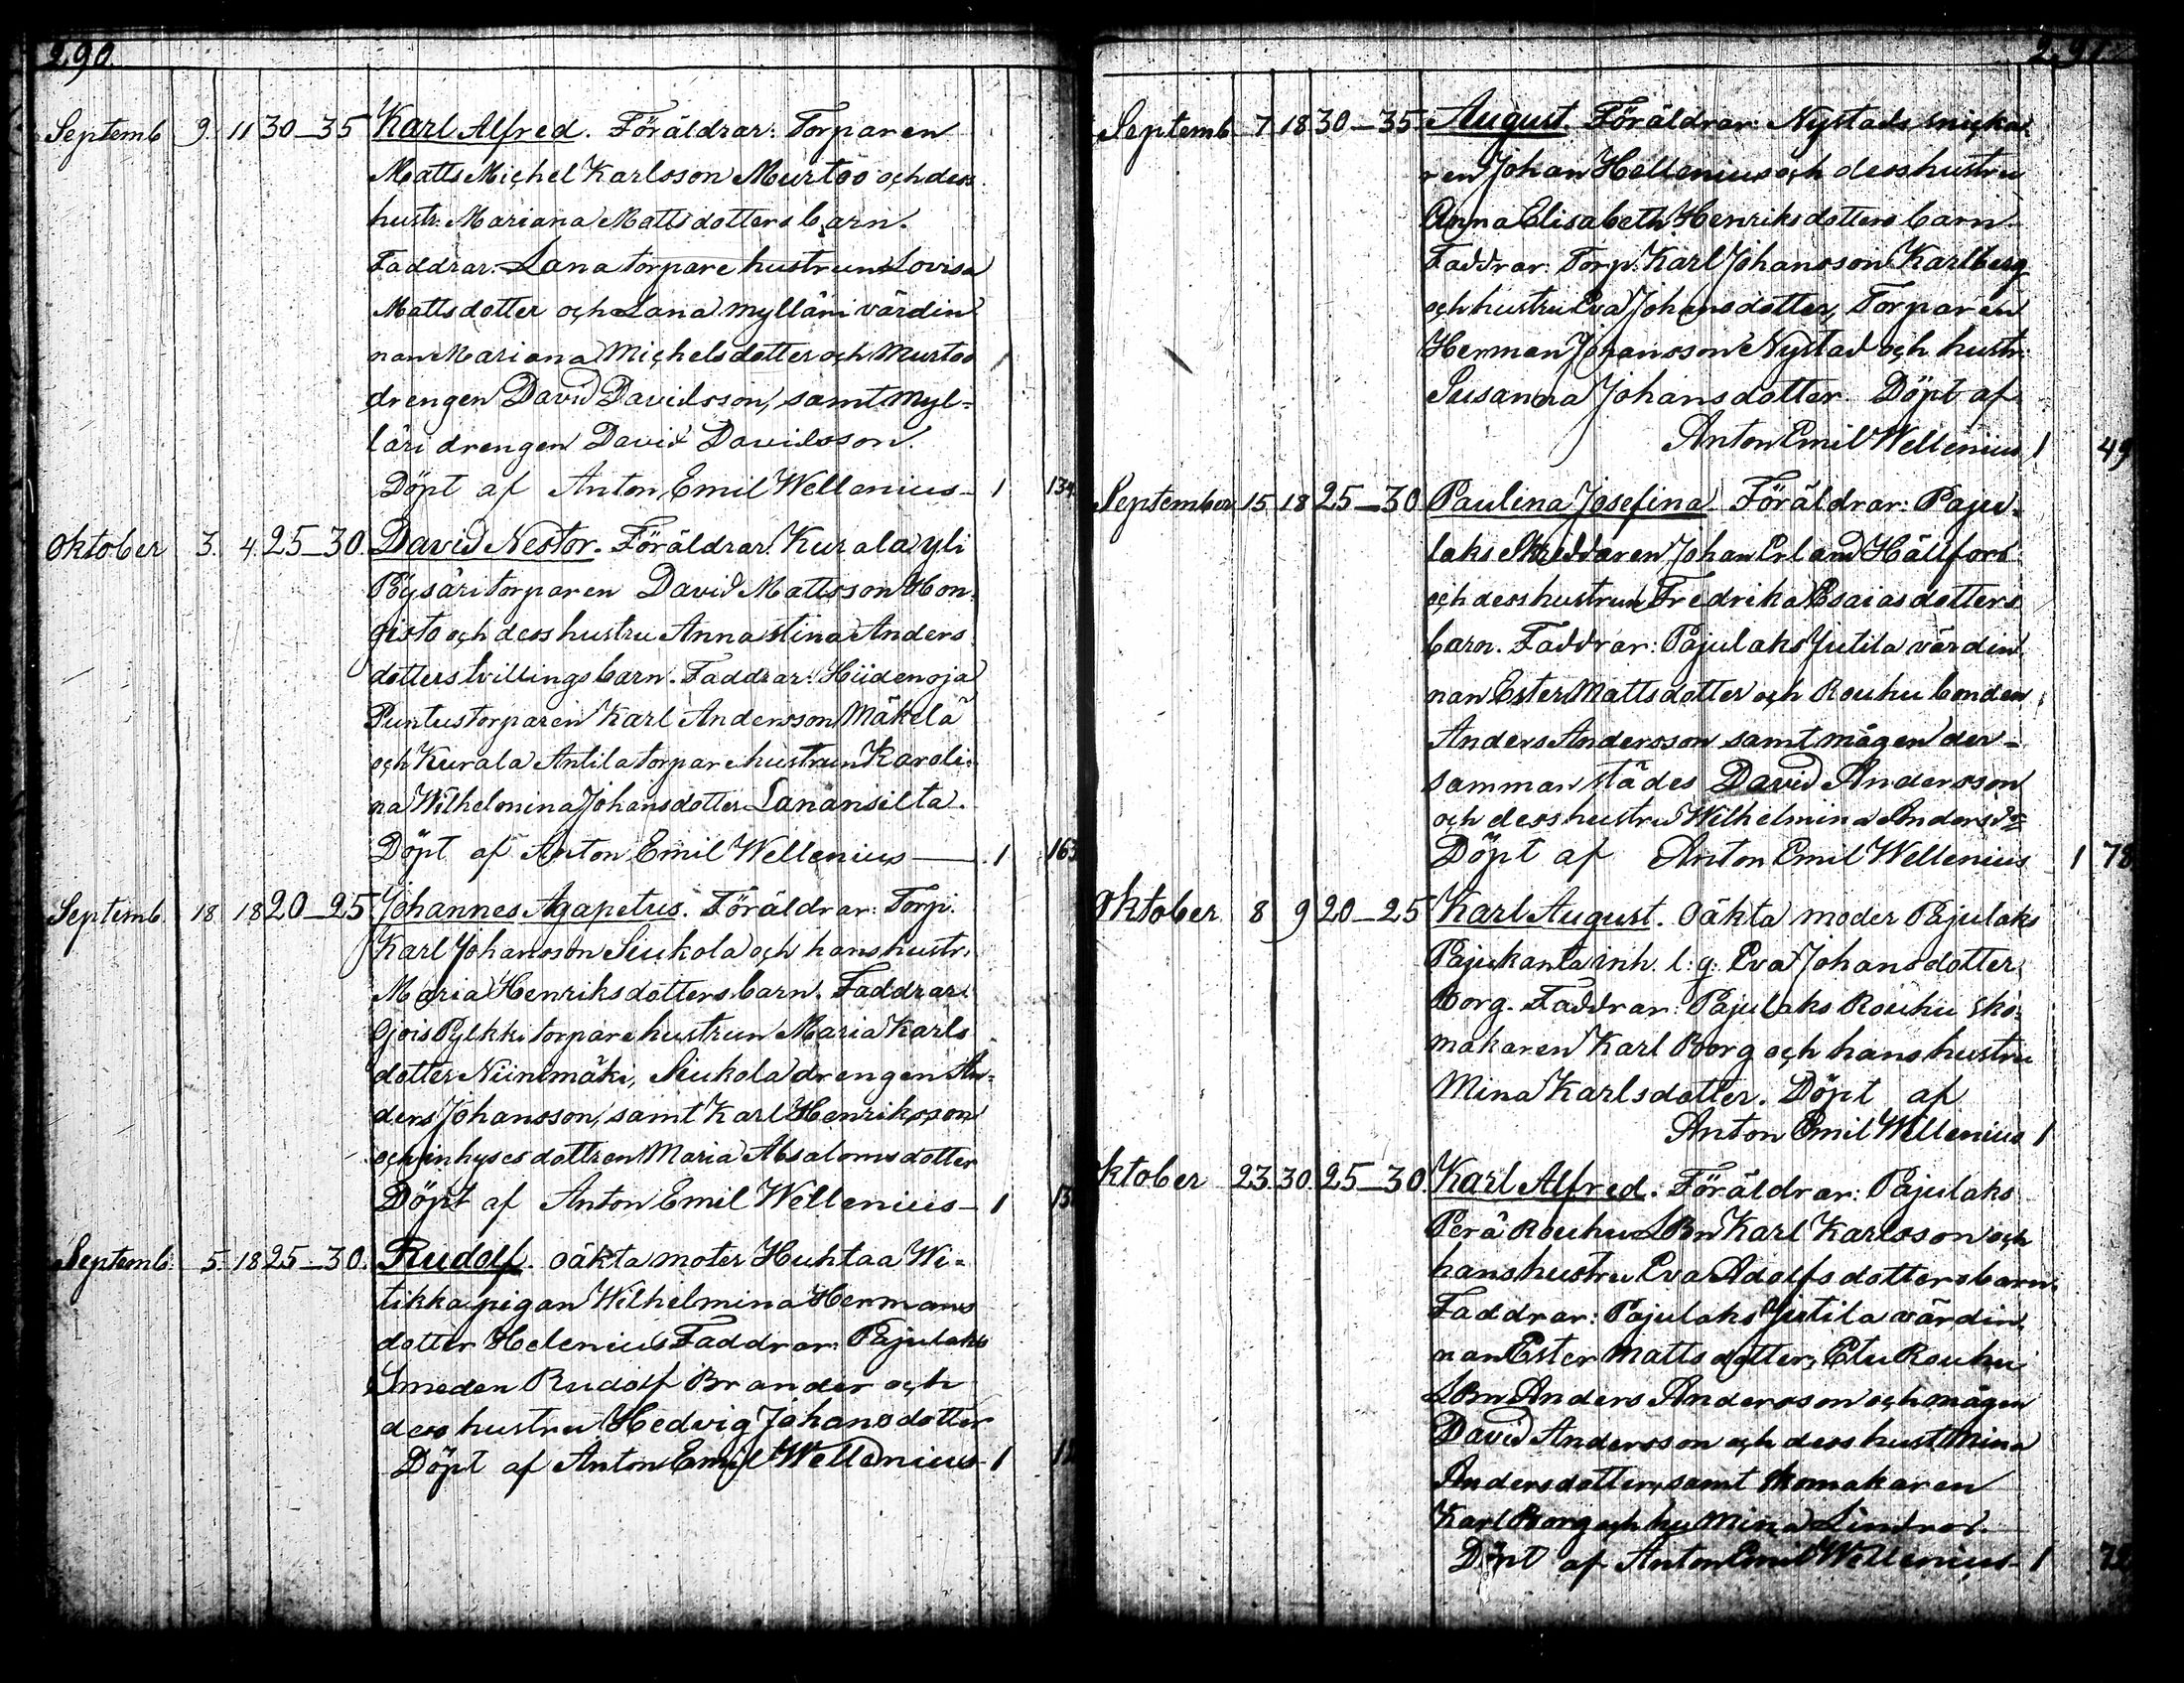 290
Septemb. 9. 11 30—35 Karl Alfred. Föräldrar: Torparen
Matts Michel Karlsson Murtoo och dess
hustr. Mariana Mattsdotters barn.
Faddrar: Lana torpare hustrun Lovisa
Mattsdotter och Lana mylläri värdin
nan Mariana Michelsdotter och Murtoo
drengen David Davidsson, samt Myl=
läri drengen David Davidsson.
Döpt af Anton Emil Wellenius— 1 134
Oktober 3. 4. 25—30. David Nestor. Föräldrar: Kurala yli
Pöysäri torparen David Mattsson Hon
gisto och dess hustru Anna Stina Anders
dotters tvillingsbarn. Faddrar: Hiidenoja
Puntus torparen Karl Andersson Mäkelä
och Kurala Antila torpare hustrun Karoli=
na Wilhelmina Johansdotter Lanansilta.
Döpt af Anton Emil Wellenius— 1 163
Septemb. 18 18 20—25 Johannes Agapetus. Föräldrar: Torp.
Karl Johansson Siukola och hans hustr.
Maria Henriksdotters barn. Faddrar:
Gois Pylkki torpare hustrun Maria Karls
dotter Niinimäki, Siukola drengen An=
ders Johansson, samt Karl Henriksson
och inhyses dottren Maria Absalomsdotter
Döpt af Anton Emil Wellenius— 1 13
Septemb. 5. 18 25—30. Rudolf. Oäkta moter Huhtaa Wi=
tikka pigan Wilhelmina Hermans
dotter Helenius Faddrar: Pajulaks
Smeden Rudolf Brander och
dess hustru Hedvig Johansdotter
Döpt af Anton Emil Wellenius— 1 1
291
Septemb. 7 18 30—35. August. Föräldrar: Nystads snicka=
ren Johan Hellenius och dess hustru
Anna Elisabeth Henriksdotters barn.
Faddrar: Torp. Karl Johansson Karlberg
och hustru Eva Johansdotter, Torparen
Herman Johansson Nystad och hustr.
Susanna Johansdotter. Döpt af
Anton Emil Wellenius 1 49
September 15 18 25—30 Paulina Josefina. Föräldrar: Paju=
laks Skreddaren Johan Erland Hällfors
och dess hustrun Fredrika Esaiasdotters
barn. Faddrar: Pajulaks Jutila värdin
nan Ester Mattsdotter och Rouhu bonden
Anders Andersson samt mågen der=
samman städes David Andersson
och dess hustru Wilhelmina Andersd:r
Döpt af Anton Emil Wellenius 1 78
Oktober 8 9 20—25 Karl August. Oäkta moder Pajulaks
Pajukanta inh. l: q: Eva Johansdotter
Borg. Faddrar: Pajulaks Rouhu sko=
makaren Karl Borg och hans hustru
Mina Karlsdotter. Döpt af
Anton Emil Wellenius 1
ktober 23. 30. 25—30. Karl Alfred. Föräldrar: Pajulaks
Perä Rouhu LBn Karl Karlsson och
hans hustru Eva Adolfsdotters barn.
Faddrar: Pajulaks Jutila värdin=
nan Ester Mattsdotter, Etu Rouhu
LBn Anders Andersson och mågen
David Andersson och dess hust. Mina
Andersdotter, samt skomakaren
Karl Borg och hu Mina Lindros.
Döpt af Anton Emil Wellenius— 1 72